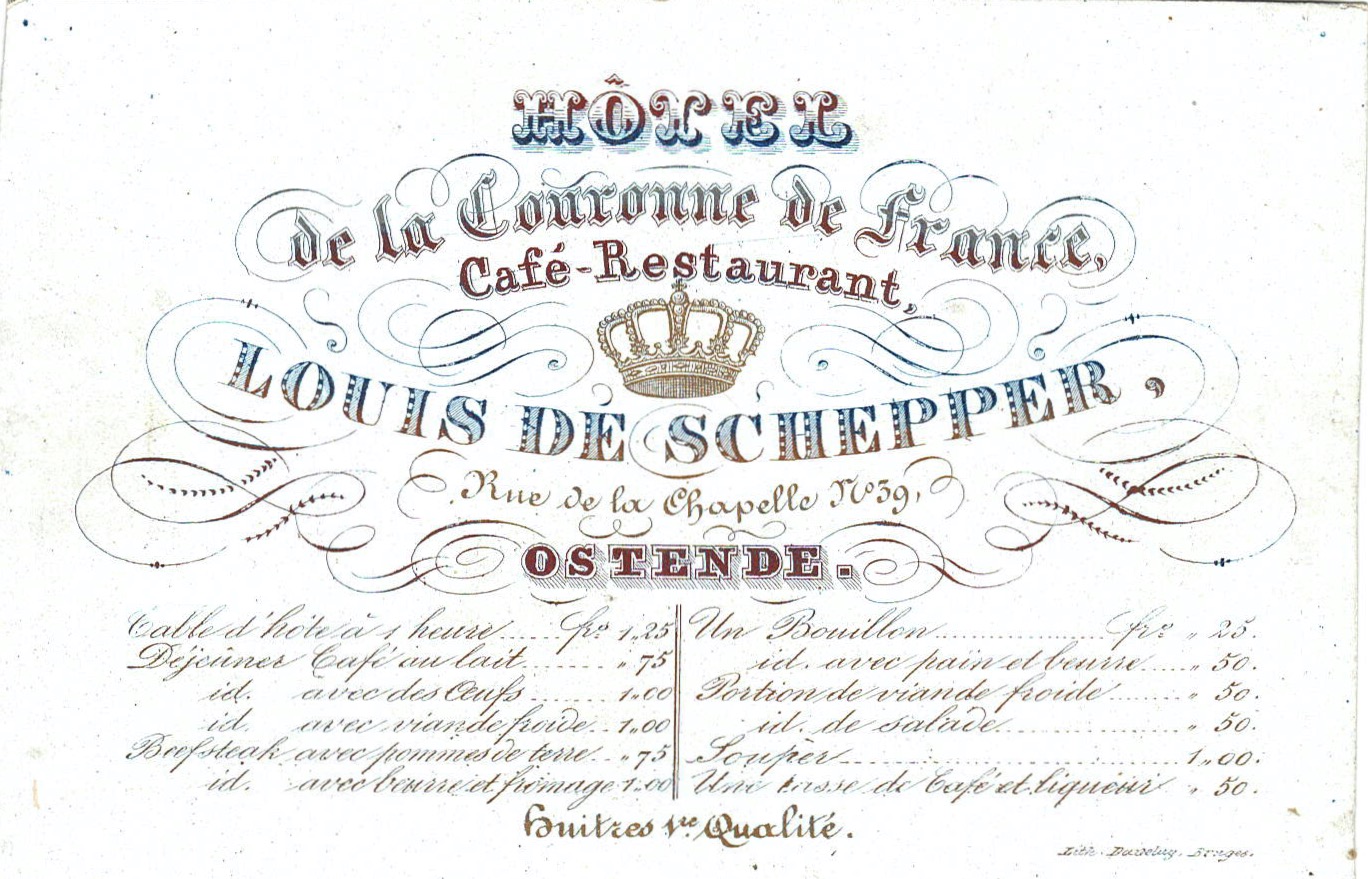 HÔTEL
de la Couronne de France,
Café-Restaurant,
LOUIS DE SCHEPPER,
Rue de la Chapelle Nº 39,
OSTENDE.
Table d'hôte à 1 heure ..... frs 1„25
Déjeûner Café au lait ........ „ 75
id. avec des Œufs ........ 1„00
id. avec viande froide .. 1„00
Beefsteak avec pommes de terre .. „ 75
id. avec beurre et fromage 1„00
Un Bouillon .................... frs „ 25.
id. avec pain et beurre ..... „ 50.
Portion de viande froide ......... „ 50.
id. de salade .................. „ 50.
Soupèr .............................. 1„00.
Une tasse de Café et liqueur „ 50.
Huitres 1re Qualité.
Lith. Daveluy, Bruges.